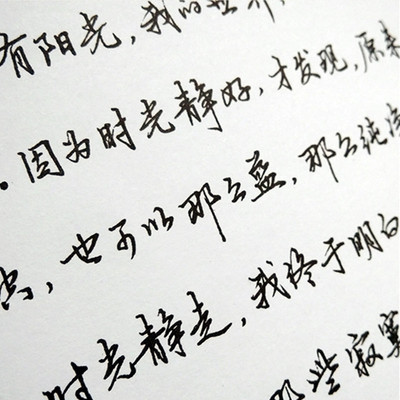 有阳光，我的世界，
。因为时光静好，才发现，原来
，也可以那么蓝，那么纯净
时光静走，我终于明白
那些寂寞